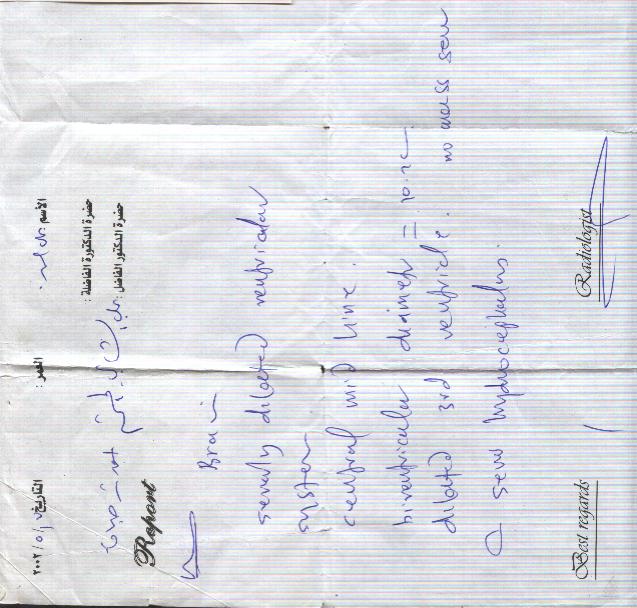 الأسم :
العمر :
التاريخ ٢٠٠٢/٥/
حضرة الدكتورة الفاضلة :
حضرة الدكتور الفاضل :
Report
Brain
severly dilated ventricular
system
central mid line .
biventricular diameter =
dilated 3rd ventricle . no mass seen
hydrocephalus.
Best regards
Radiologist